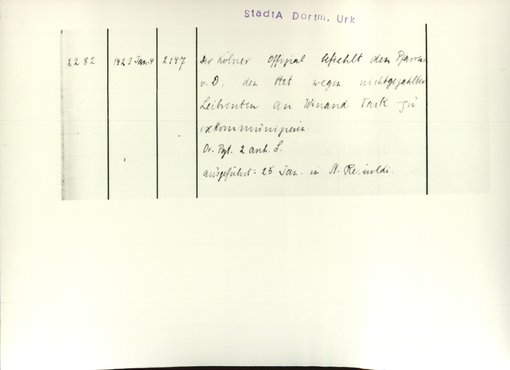 StadtA Dortm. Urk
2282 1423 Jan. 4 2147 Der Kölner Offizial befiehlt den Pfarrern
v. D., den Rat wegen nichtgezahlter
Leibrenten an Winand Task zu
exkommunizieren
Or. Pgt. 2 anh. S.
ausgeführt: 25 Jan. in St. Reinoldi.